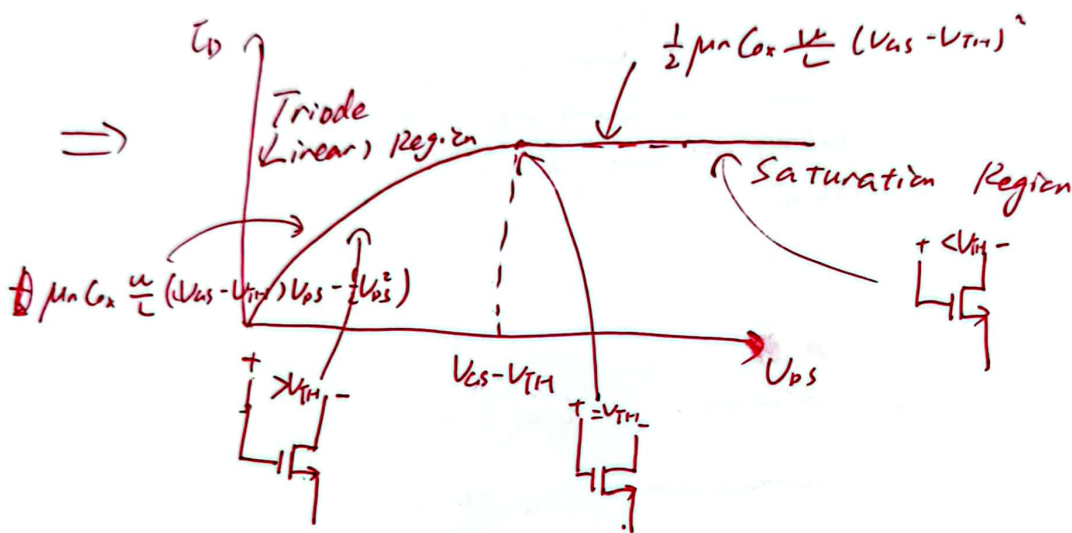 I_D
½ μn Cox W/L (VGS - VTH)²
⇒
Triode
(Linear) Region
Saturation Region
+ <VTH -
μn Cox W/L ((VGS - VTH) VDS - ½ VDS²)
VGS - VTH
VDS
+ >VTH -
+ =VTH -